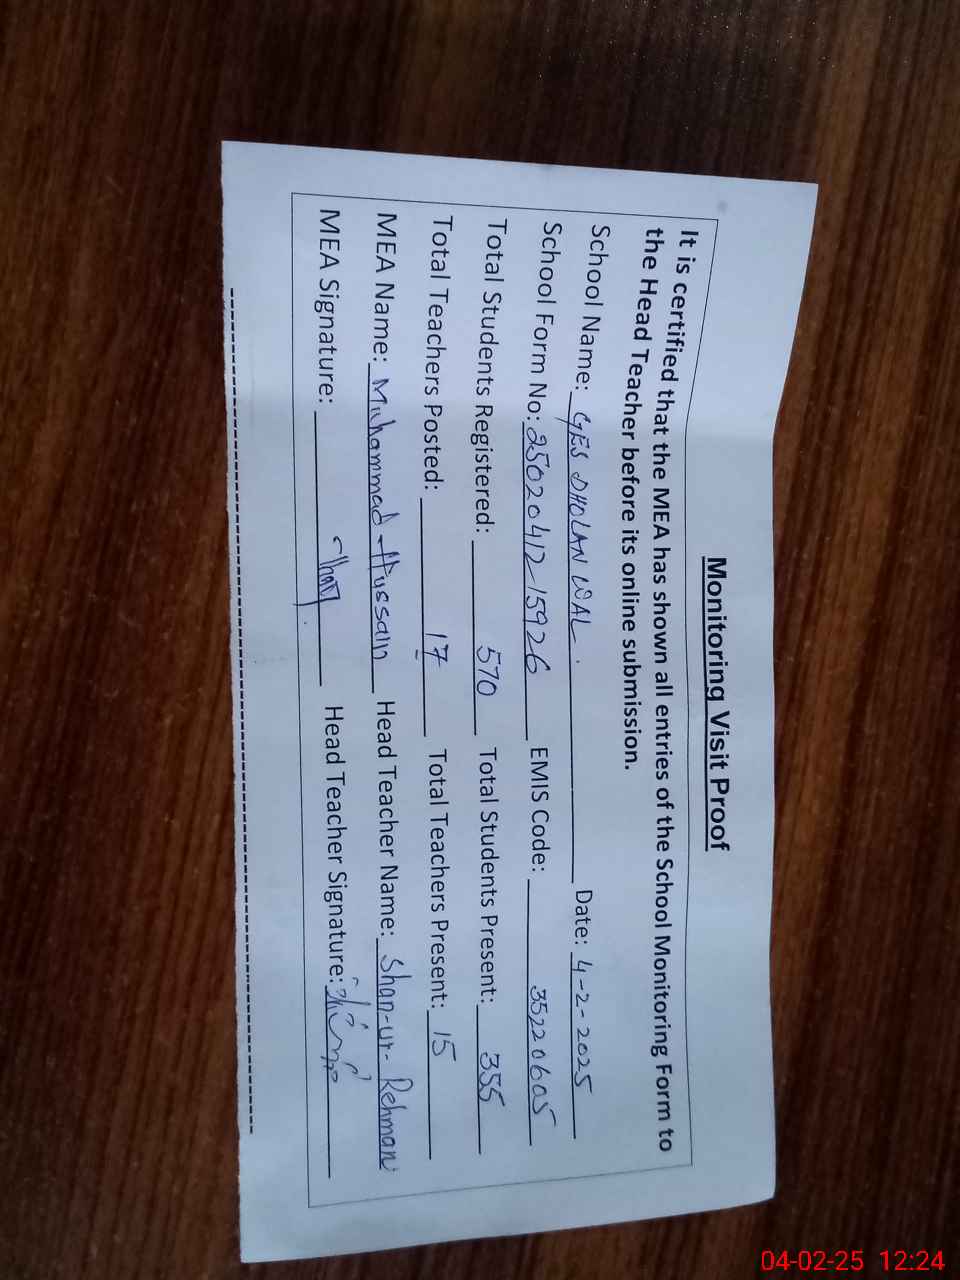 Monitoring Visit Proof
It is certified that the MEA has shown all entries of the School Monitoring Form to
the Head Teacher before its online submission.
School Name: GES DHOLAN WAL. Date: 4-2-2025
School Form No: 25020412-15926 EMIS Code: 35220605
Total Students Registered: 570 Total Students Present: 355
Total Teachers Posted: 17 Total Teachers Present: 15
MEA Name: Muhammad Hussain Head Teacher Name: Shan-ur-Rehman
MEA Signature: Head Teacher Signature:
04-02-25 12:24